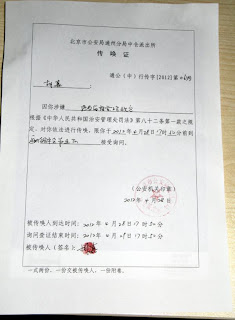 北京市公安局通州分局中仓派出所
传唤证
通公(中)行传字[2012]第 号
胡嘉
因你涉嫌
根据《中华人民共和国治安管理处罚法》第八十二条第一款之规
定,对你依法进行传唤,限你于2012年4月28日17时30分前到
接受询问。
(公安机关印章)
2012年4月28日
被传唤人到达时间:2012年4月28日17时30分
询问查证结束时间:2012年4月29日17时30分
被传唤人(签名):
一式两份,一份交被传唤人,一份附卷。